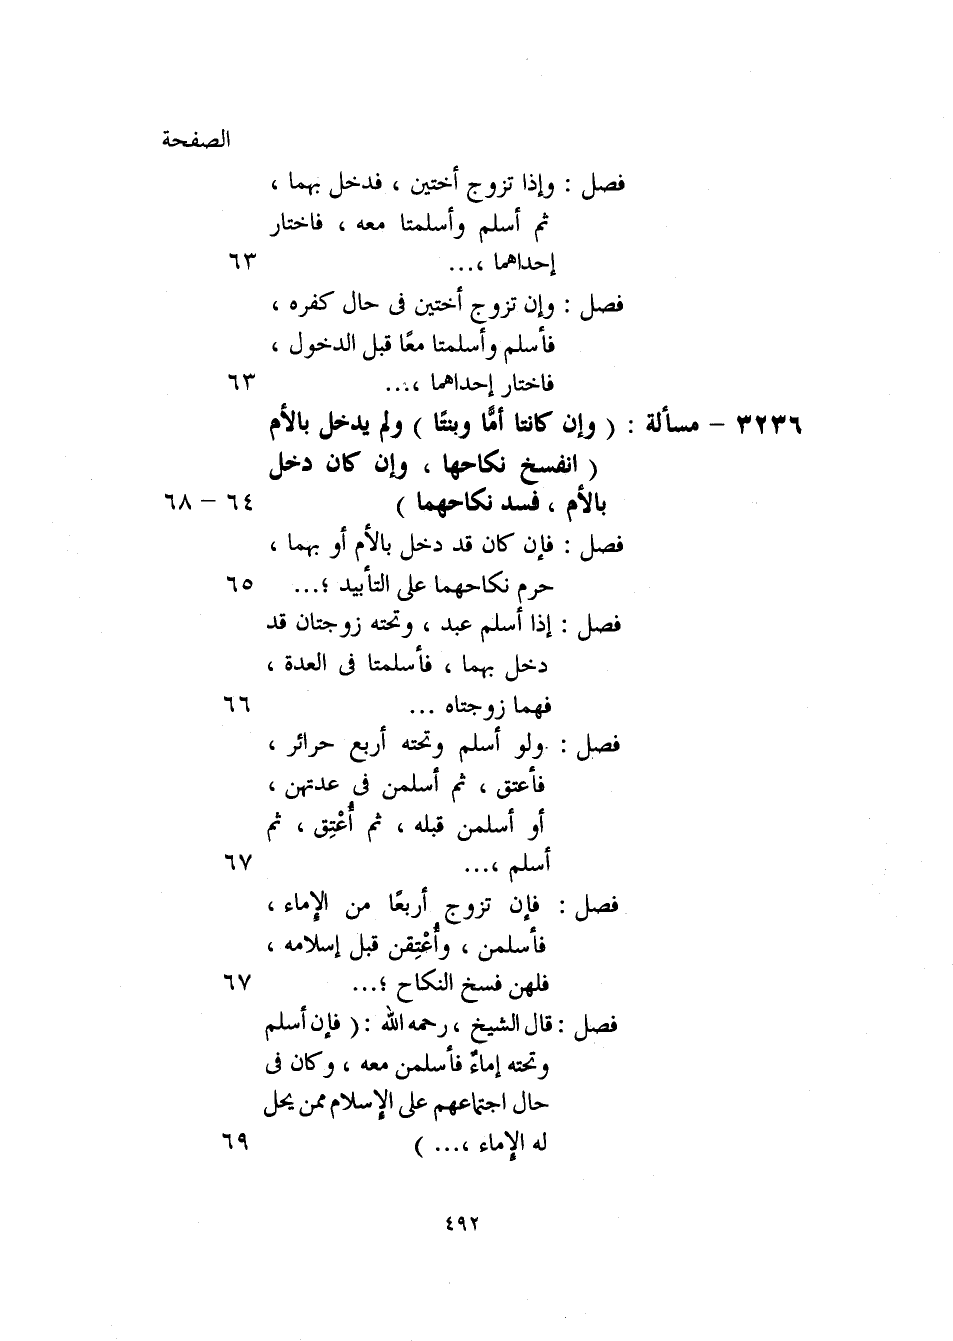 الصفحة
فصل : وإذا تزوج أختين ، فدخل بهما ،
ثم أسلم وأسلمتا معه ، فاختار
إحداهما ،... ٦٣
فصل : وإن تزوج أختين فى حال كفره ،
فأسلم وأسلمتا معًا قبل الدخول ،
فاختار إحداهما ،... ٦٣
٣٢٣٦ – مسألة : ( وإن كانتا أمًّا وبنتًا ) ولم يدخل بالأم
( انفسخ نكاحها ، وإن كان دخل
بالأم ، فسد نكاحهما ) ٦٤ – ٦٨
فصل : فإن كان قد دخل بالأم أو بهما ،
حرم نكاحهما على التأبيد ؛... ٦٥
فصل : إذا أسلم عبد ، وتحته زوجتان قد
دخل بهما ، فأسلمتا فى العدة ،
فهما زوجتاه ... ٦٦
فصل : ولو أسلم وتحته أربع حرائر ،
فأعتق ، ثم أسلمن فى عدتهن ،
أو أسلمن قبله ، ثم أُعْتِق ، ثم
أسلم ،... ٦٧
فصل : فإن تزوج أربعًا من الإماء ،
فأسلمن ، وأُعْتِقن قبل إسلامه ،
فلهن فسخ النكاح ؛... ٦٧
فصل : قال الشيخ ، رحمه الله : ( فإن أسلم
وتحته إماءٌ فأسلمن معه ، وكان فى
حال اجتماعهم على الإسلام ممن يحل
له الإماء ،... ) ٦٩
٤٩٢